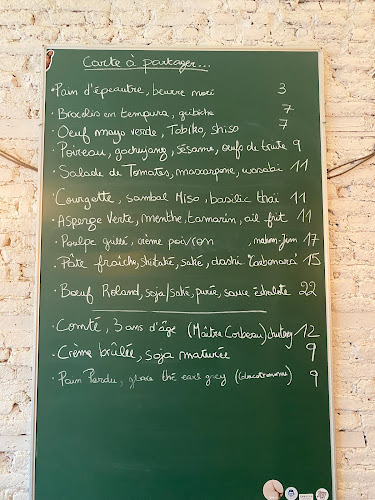 Carte à partager...
• Pain d'épeautre, beurre nori 3
• Brocolis en tempura, gribiche 7
• Oeuf mayo verde, Tobiko, shiso 7
Poireau, gochujang, sésame, oeufs de truite 9
• Salade de Tomates, mascarpone, wasabi 11
• Courgette, sambal Miso, basilic thaï 11
• Asperge verte, menthe, tamarin, ail frit 11
• Poulpe grillé, crème poivron 17
• Pâte fraîche, shitaké, saké, dashi 15
• Boeuf Roland, soja/saké, purée, sauce échalote 22
• Comté, 3 ans d'âge (Maître Corbeau) chutney 12
• Crème brûlée, soja maturée 9
• Pain Perdu, glace thé earl grey 9